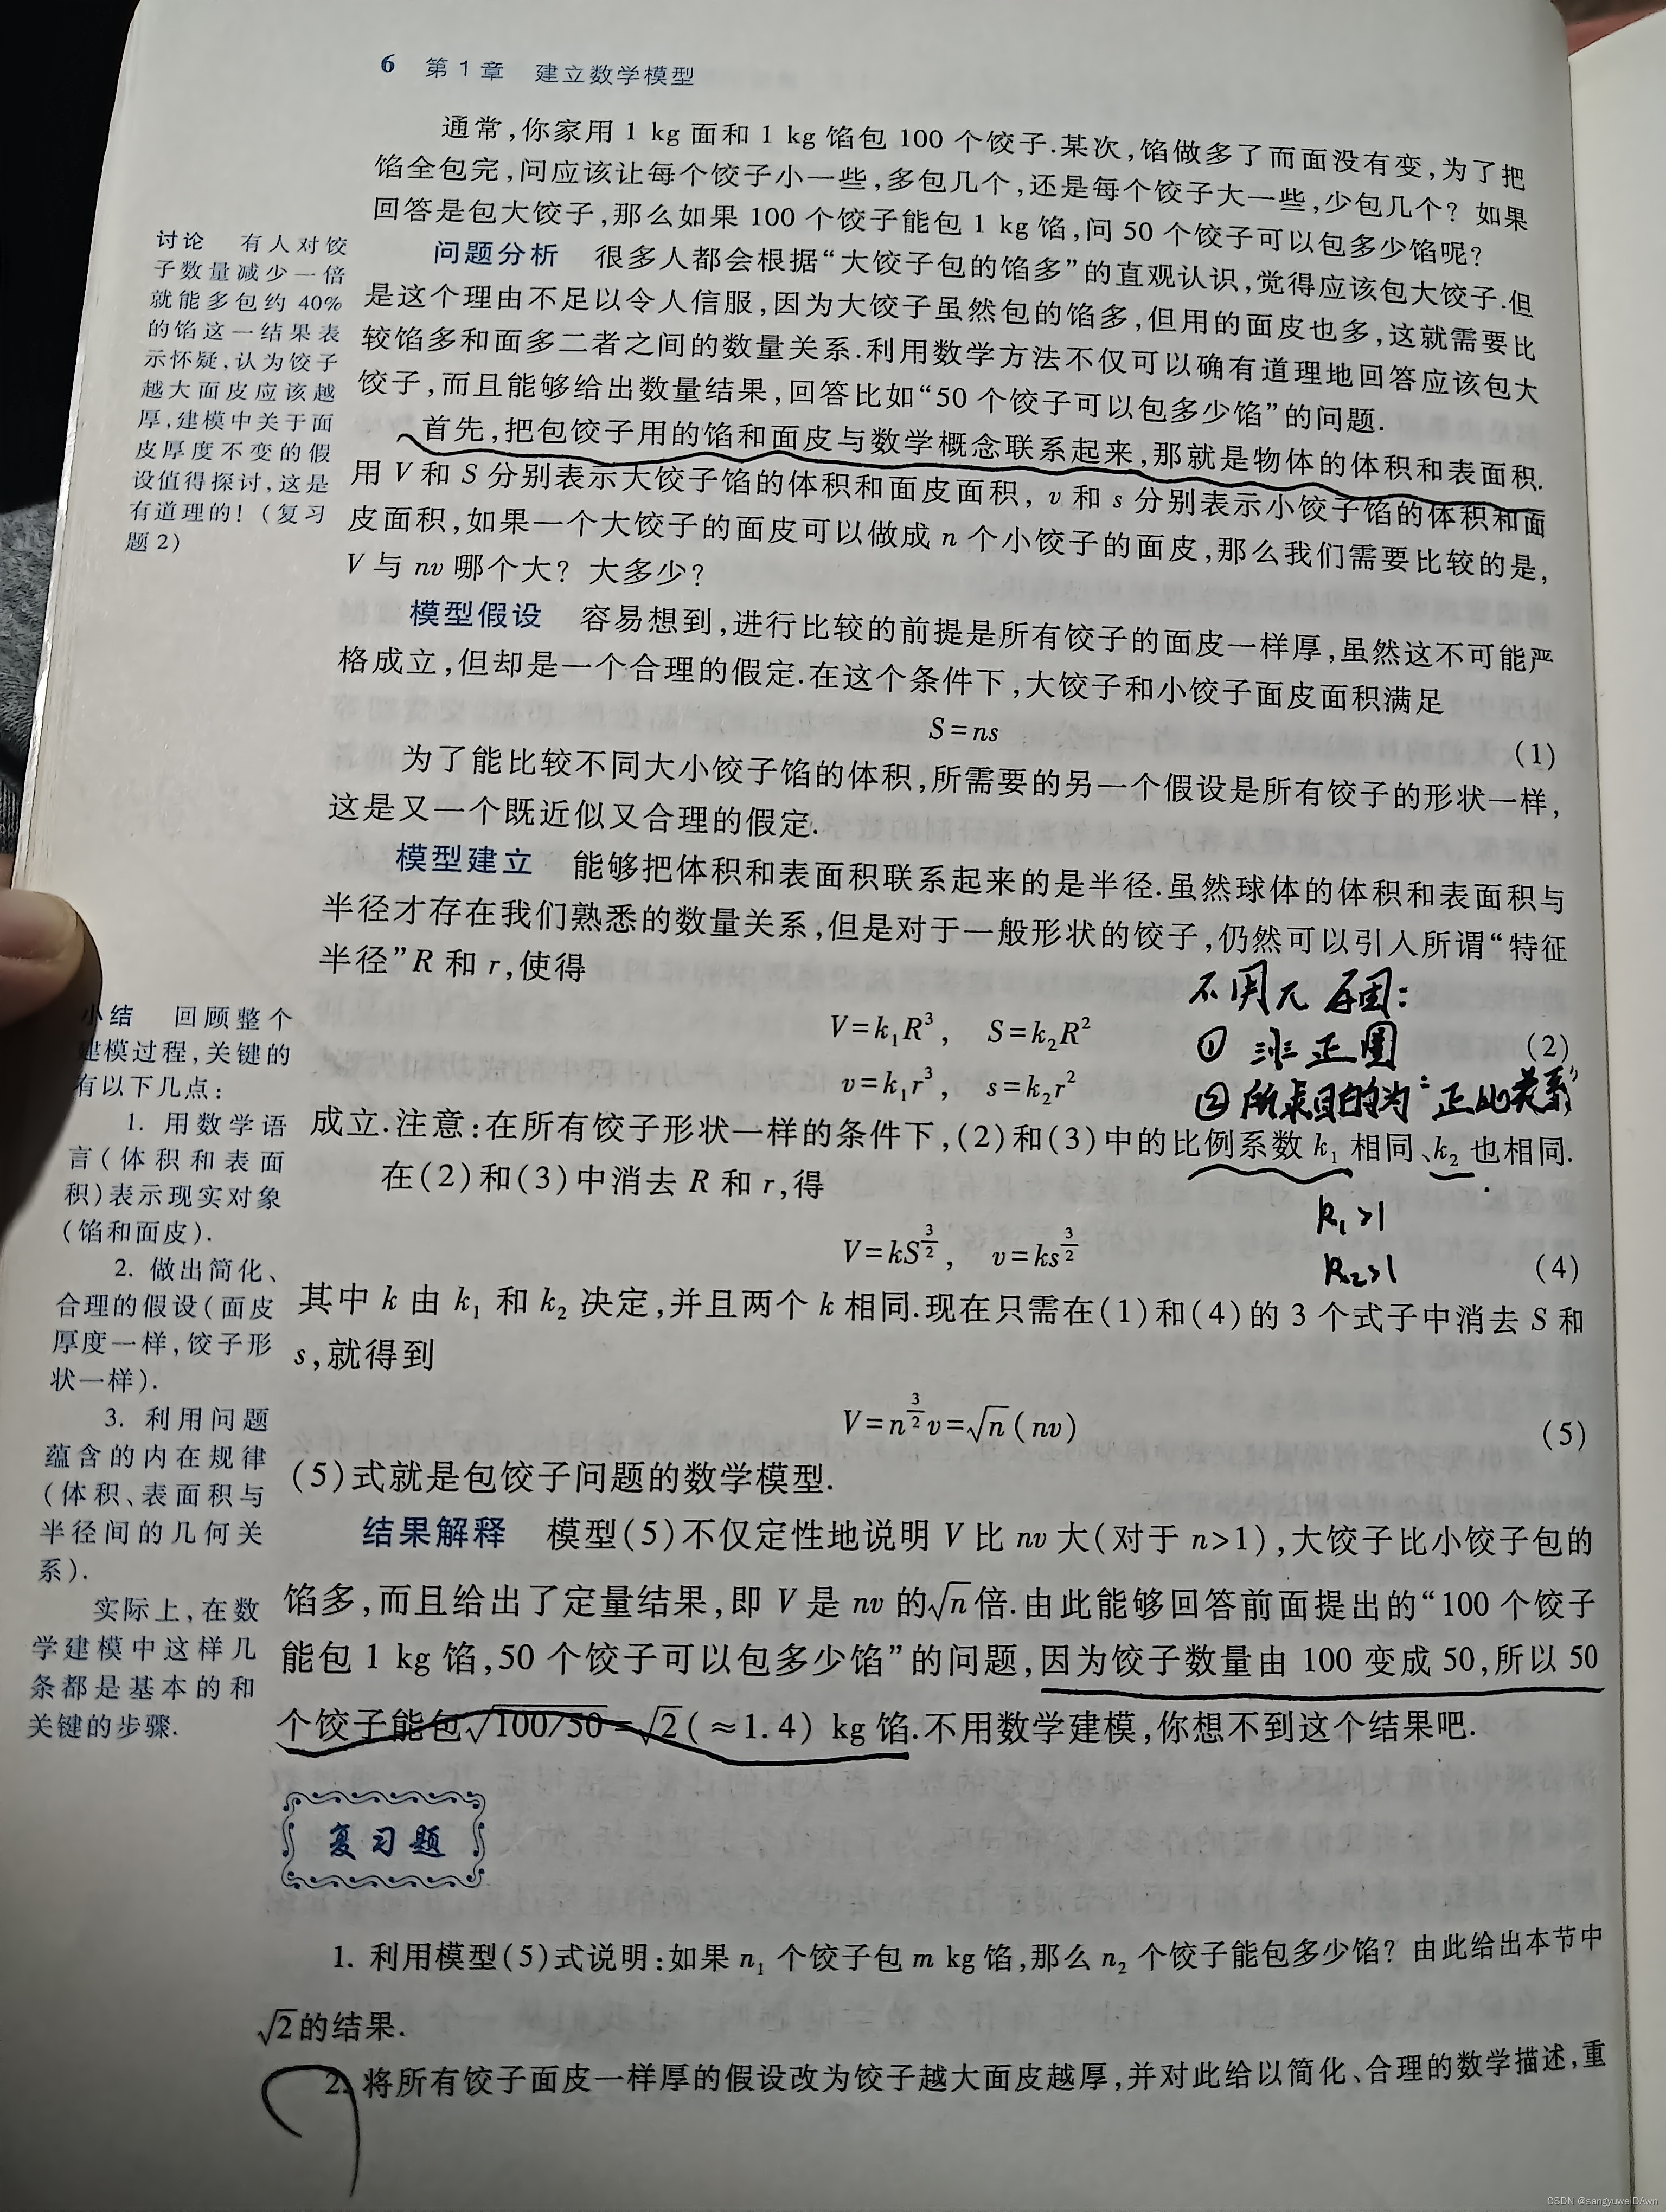 6 第1章 建立数学模型
通常,你家用 1 kg 面和 1 kg 馅包 100 个饺子.某次,馅做多了而面没有变,为了把
馅全包完,问应该让每个饺子小一些,多包几个,还是每个饺子大一些,少包几个? 如果
回答是包大饺子,那么如果 100 个饺子能包 1 kg 馅,问 50 个饺子可以包多少馅呢?
问题分析 很多人都会根据“大饺子包的馅多”的直观认识,觉得应该包大饺子.但
是这个理由不足以令人信服,因为大饺子虽然包的馅多,但用的面皮也多,这就需要比
较馅多和面多二者之间的数量关系.利用数学方法不仅可以确有道理地回答应该包大
饺子,而且能够给出数量结果,回答比如“50 个饺子可以包多少馅”的问题.
首先,把包饺子用的馅和面皮与数学概念联系起来,那就是物体的体积和表面积.
用 V 和 S 分别表示大饺子馅的体积和面皮面积, v 和 s 分别表示小饺子馅的体积和面
皮面积,如果一个大饺子的面皮可以做成 n 个小饺子的面皮,那么我们需要比较的是,
V 与 nv 哪个大? 大多少?
模型假设 容易想到,进行比较的前提是所有饺子的面皮一样厚,虽然这不可能严
格成立,但却是一个合理的假定.在这个条件下,大饺子和小饺子面皮面积满足
S=ns (1)
为了能比较不同大小饺子馅的体积,所需要的另一个假设是所有饺子的形状一样,
这是又一个既近似又合理的假定.
模型建立 能够把体积和表面积联系起来的是半径.虽然球体的体积和表面积与
半径才存在我们熟悉的数量关系,但是对于一般形状的饺子,仍然可以引入所谓“特征
半径”R 和 r,使得
V=k₁R³, S=k₂R² (2)
v=k₁r³, s=k₂r²
成立.注意:在所有饺子形状一样的条件下,(2)和(3)中的比例系数 k₁ 相同、k₂ 也相同.
在(2)和(3)中消去 R 和 r,得
V=kS^{3/2}, v=ks^{3/2} (4)
其中 k 由 k₁ 和 k₂ 决定,并且两个 k 相同.现在只需在(1)和(4)的 3 个式子中消去 S 和
s,就得到
V=n^{3/2}v=√n(nv) (5)
(5)式就是包饺子问题的数学模型.
结果解释 模型(5)不仅定性地说明 V 比 nv 大(对于 n>1),大饺子比小饺子包的
馅多,而且给出了定量结果,即 V 是 nv 的√n倍.由此能够回答前面提出的“100 个饺子
能包 1 kg 馅,50 个饺子可以包多少馅”的问题,因为饺子数量由 100 变成 50,所以 50
个饺子能包√100/50=√2(≈1.4) kg 馅.不用数学建模,你想不到这个结果吧.
复习题
1. 利用模型(5)式说明:如果 n₁ 个饺子包 m kg 馅,那么 n₂ 个饺子能包多少馅? 由此给出本节中
√2的结果.
2. 将所有饺子面皮一样厚的假设改为饺子越大面皮越厚,并对此给以简化、合理的数学描述,重
讨论 有人对饺
子数量减少一倍
就能多包约 40%
的馅这一结果表
示怀疑,认为饺子
越大面皮应该越
厚,建模中关于面
皮厚度不变的假
设值得探讨,这是
有道理的! (复习
题 2)
小结 回顾整个
建模过程,关键的
有以下几点:
1. 用数学语
言(体积和表面
积)表示现实对象
(馅和面皮).
2. 做出简化、
合理的假设(面皮
厚度一样,饺子形
状一样).
3. 利用问题
蕴含的内在规律
(体积、表面积与
半径间的几何关
系).
实际上,在数
学建模中这样几
条都是基本的和
关键的步骤.
不用π 原因:
① 非正圆
② 所求目的为“正比关系”
k₁>1
k₂>1
CSDN @sangyuweiDAwn